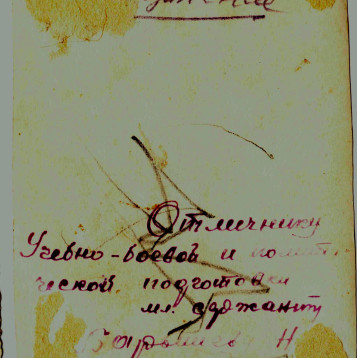 Отличнику
Учебно-боевой и полит
ческой подготовки
мл. сержанту
Н